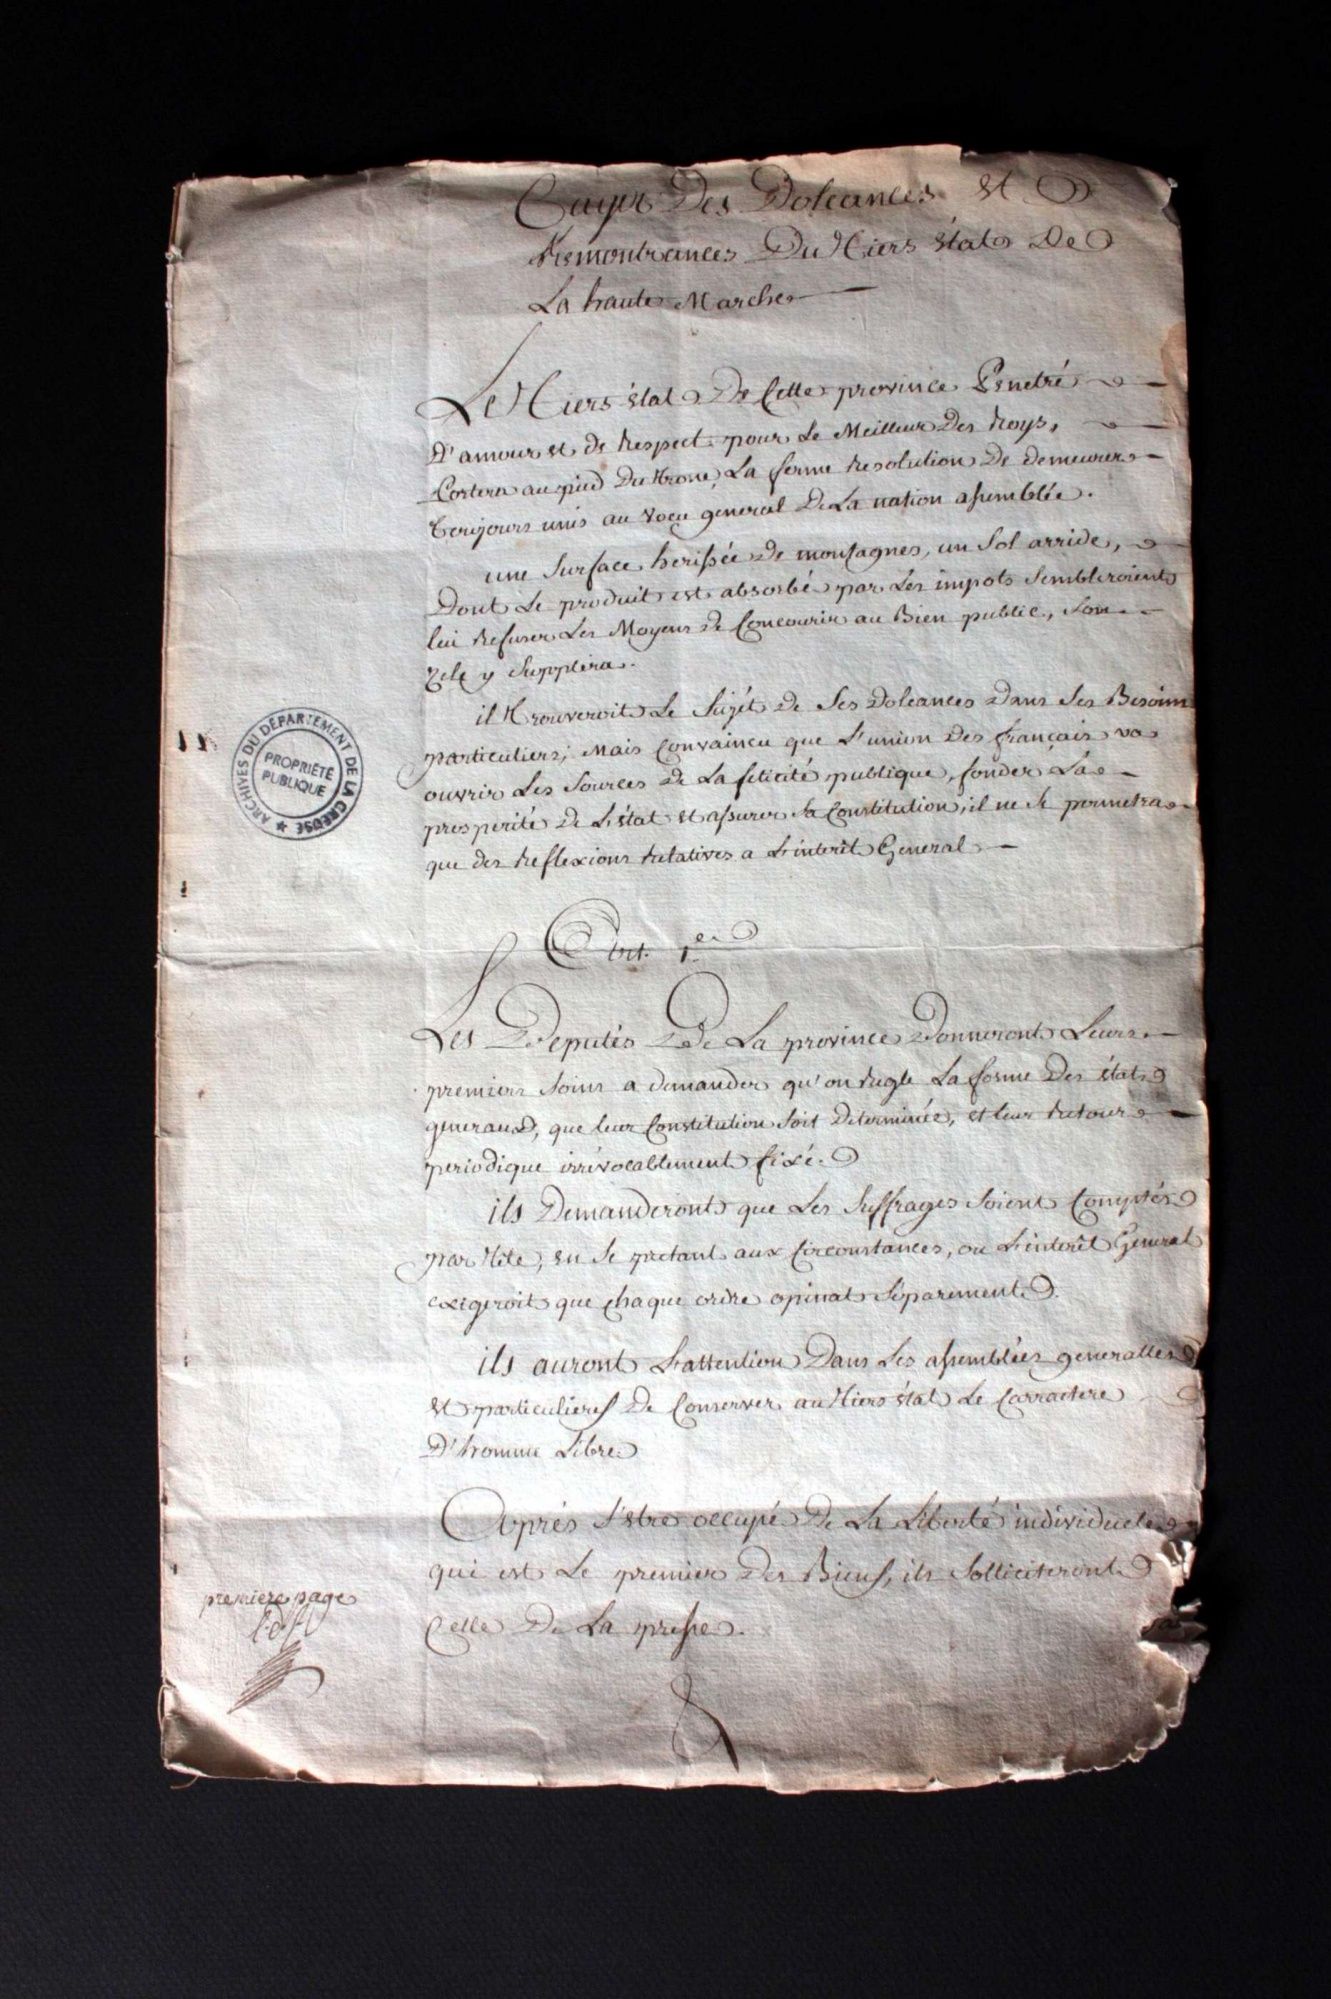 Cayer Des Doleances Et
Remontrances Du Tiers état De
La haute Marche
Le Tiers état De Cette province Penetré
D'amour et de Respect pour Le Meilleur Des Roys,
Portera au pied Du Trone, La ferme Resolution De demeurer
Toujours unis au voeu general De La nation assemblée.
une Surface herissée De montagnes, un Sol arride,
Dont Le produit est absorbé par Les impots Sembleroient
lui Refuser Les Moyens De Concourir au Bien public, Son
Zele y Supplera.
il Trouveroit Le Sujét De Ses Doleances Dans Ses Besoins
particuliers; Mais Convaincu que L'union Des français va
ouvrir Les Sources De La felicité publique, fonder La
prosperité De L'état Et assurer Sa Constitution, il ne Se permetra
que des Reflexions Relatives a L'interêt General
Art. 1er
Les Deputés De La province Donneront Leurs
premiers Soins a demander qu'on Regle La forme Des états
generaux, que leur Constitution Soit Determinée, et leur Retour
periodique irrévocablement fixé.
ils Demanderont que Les Suffrages Soient Comptés
par Tête, en Se pretant aux Circonstances, ou L'interêt General
exigeroit que chaque ordre opinat Séparement.
ils auront L'attention Dans Les assemblées generalles
Et particulieres De Conserver au Tiers état Le Carractere
D'homme Libre.
Après S'etre occupé De La Liberté individuele
qui est Le premier Des Biens, ils Solliciteront
Celle De La presse.
premiere page
ARCHIVES DU DÉPARTEMENT DE LA CREUSE
PROPRIÉTÉ
PUBLIQUE